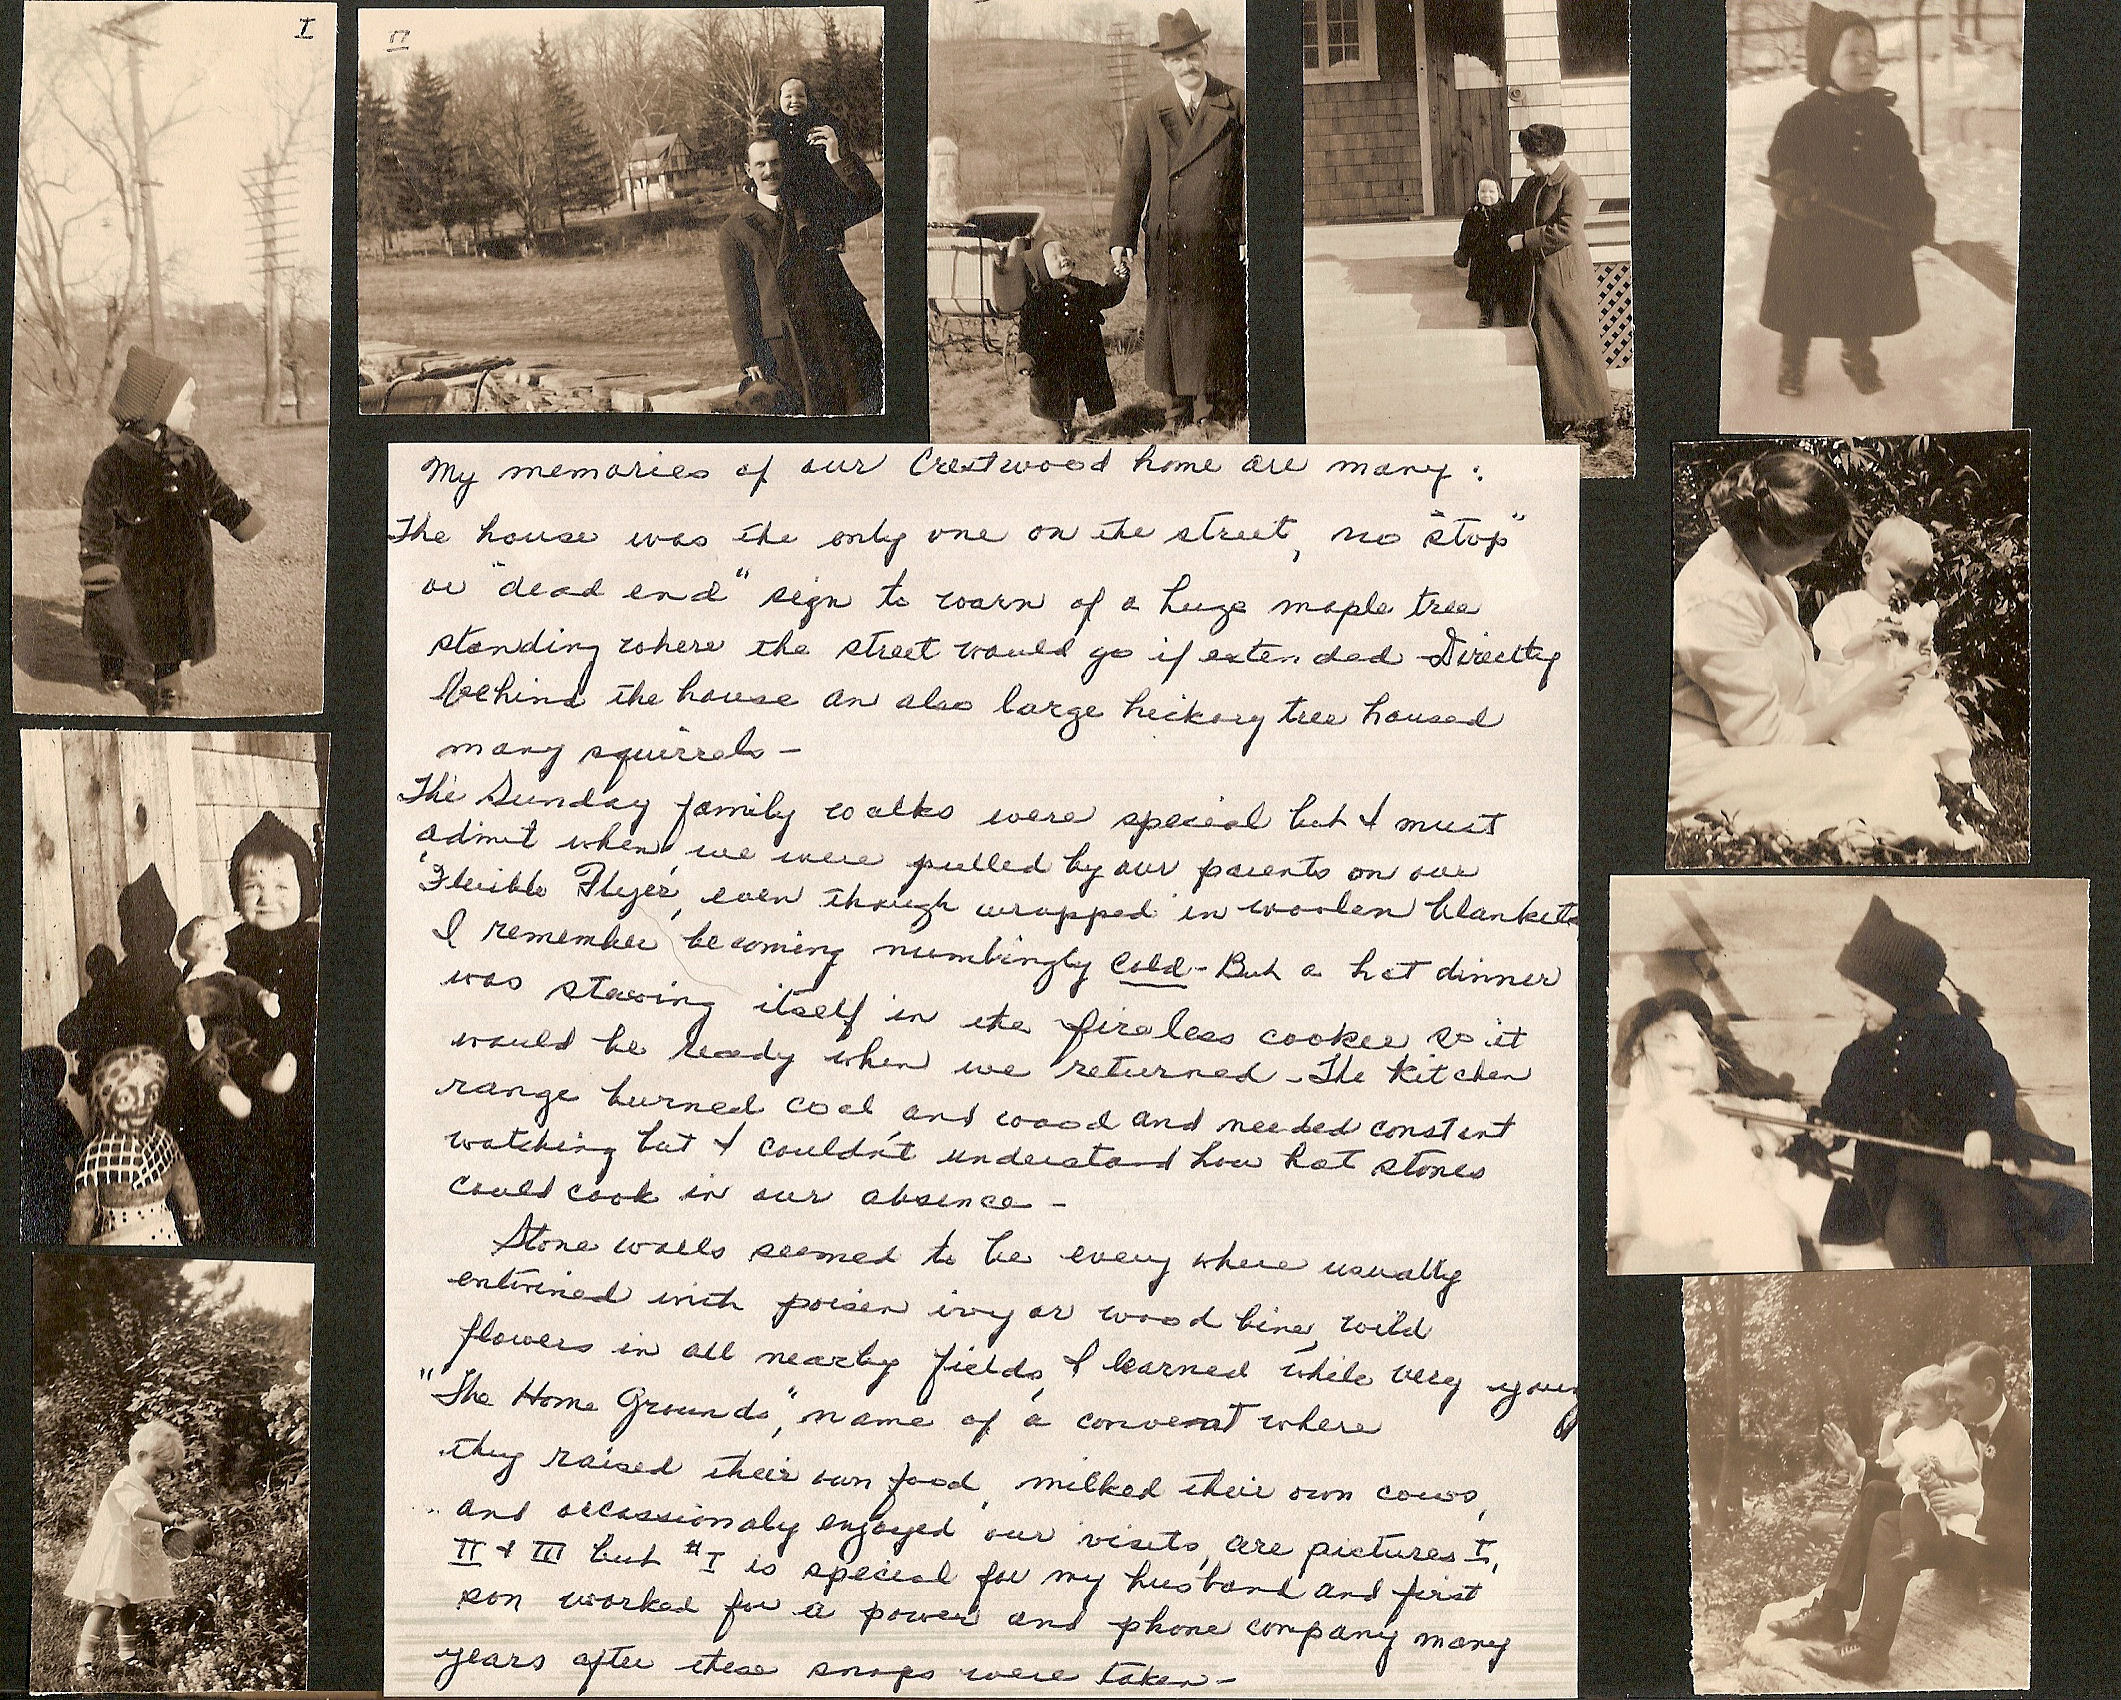 I
II
My memories of our Crestwood home are many:
The house was the only one on the street, no "stop"
or "dead end" sign to warn of a huge maple tree
standing where the street would go if extended - Directly
behind the house an also large hickory tree housed
many squirrels -
The Sunday family walks were special but I must
admit when we were pulled by our parents on our
'Flexible Flyer', even though wrapped in woolen blankets
I remember becoming numbingly cold - But a hot dinner
was stewing itself in the fireless cooker so it
would be ready when we returned - The kitchen
range burned coal and wood and needed constant
watching but I couldn't understand how hot stones
could cook in our absence -
Stone walls seemed to be every where usually
entwined with poison ivy or wood bine, wild
flowers in all nearby fields, I learned while very young
"The Home Grounds," name of a convent where
they raised their own food, milked their own cows,
and occassionaly enjoyed our visits, are pictures I,
II & III but #I is special for my husband and first
son worked for a power and phone company many
years after these snaps were taken -